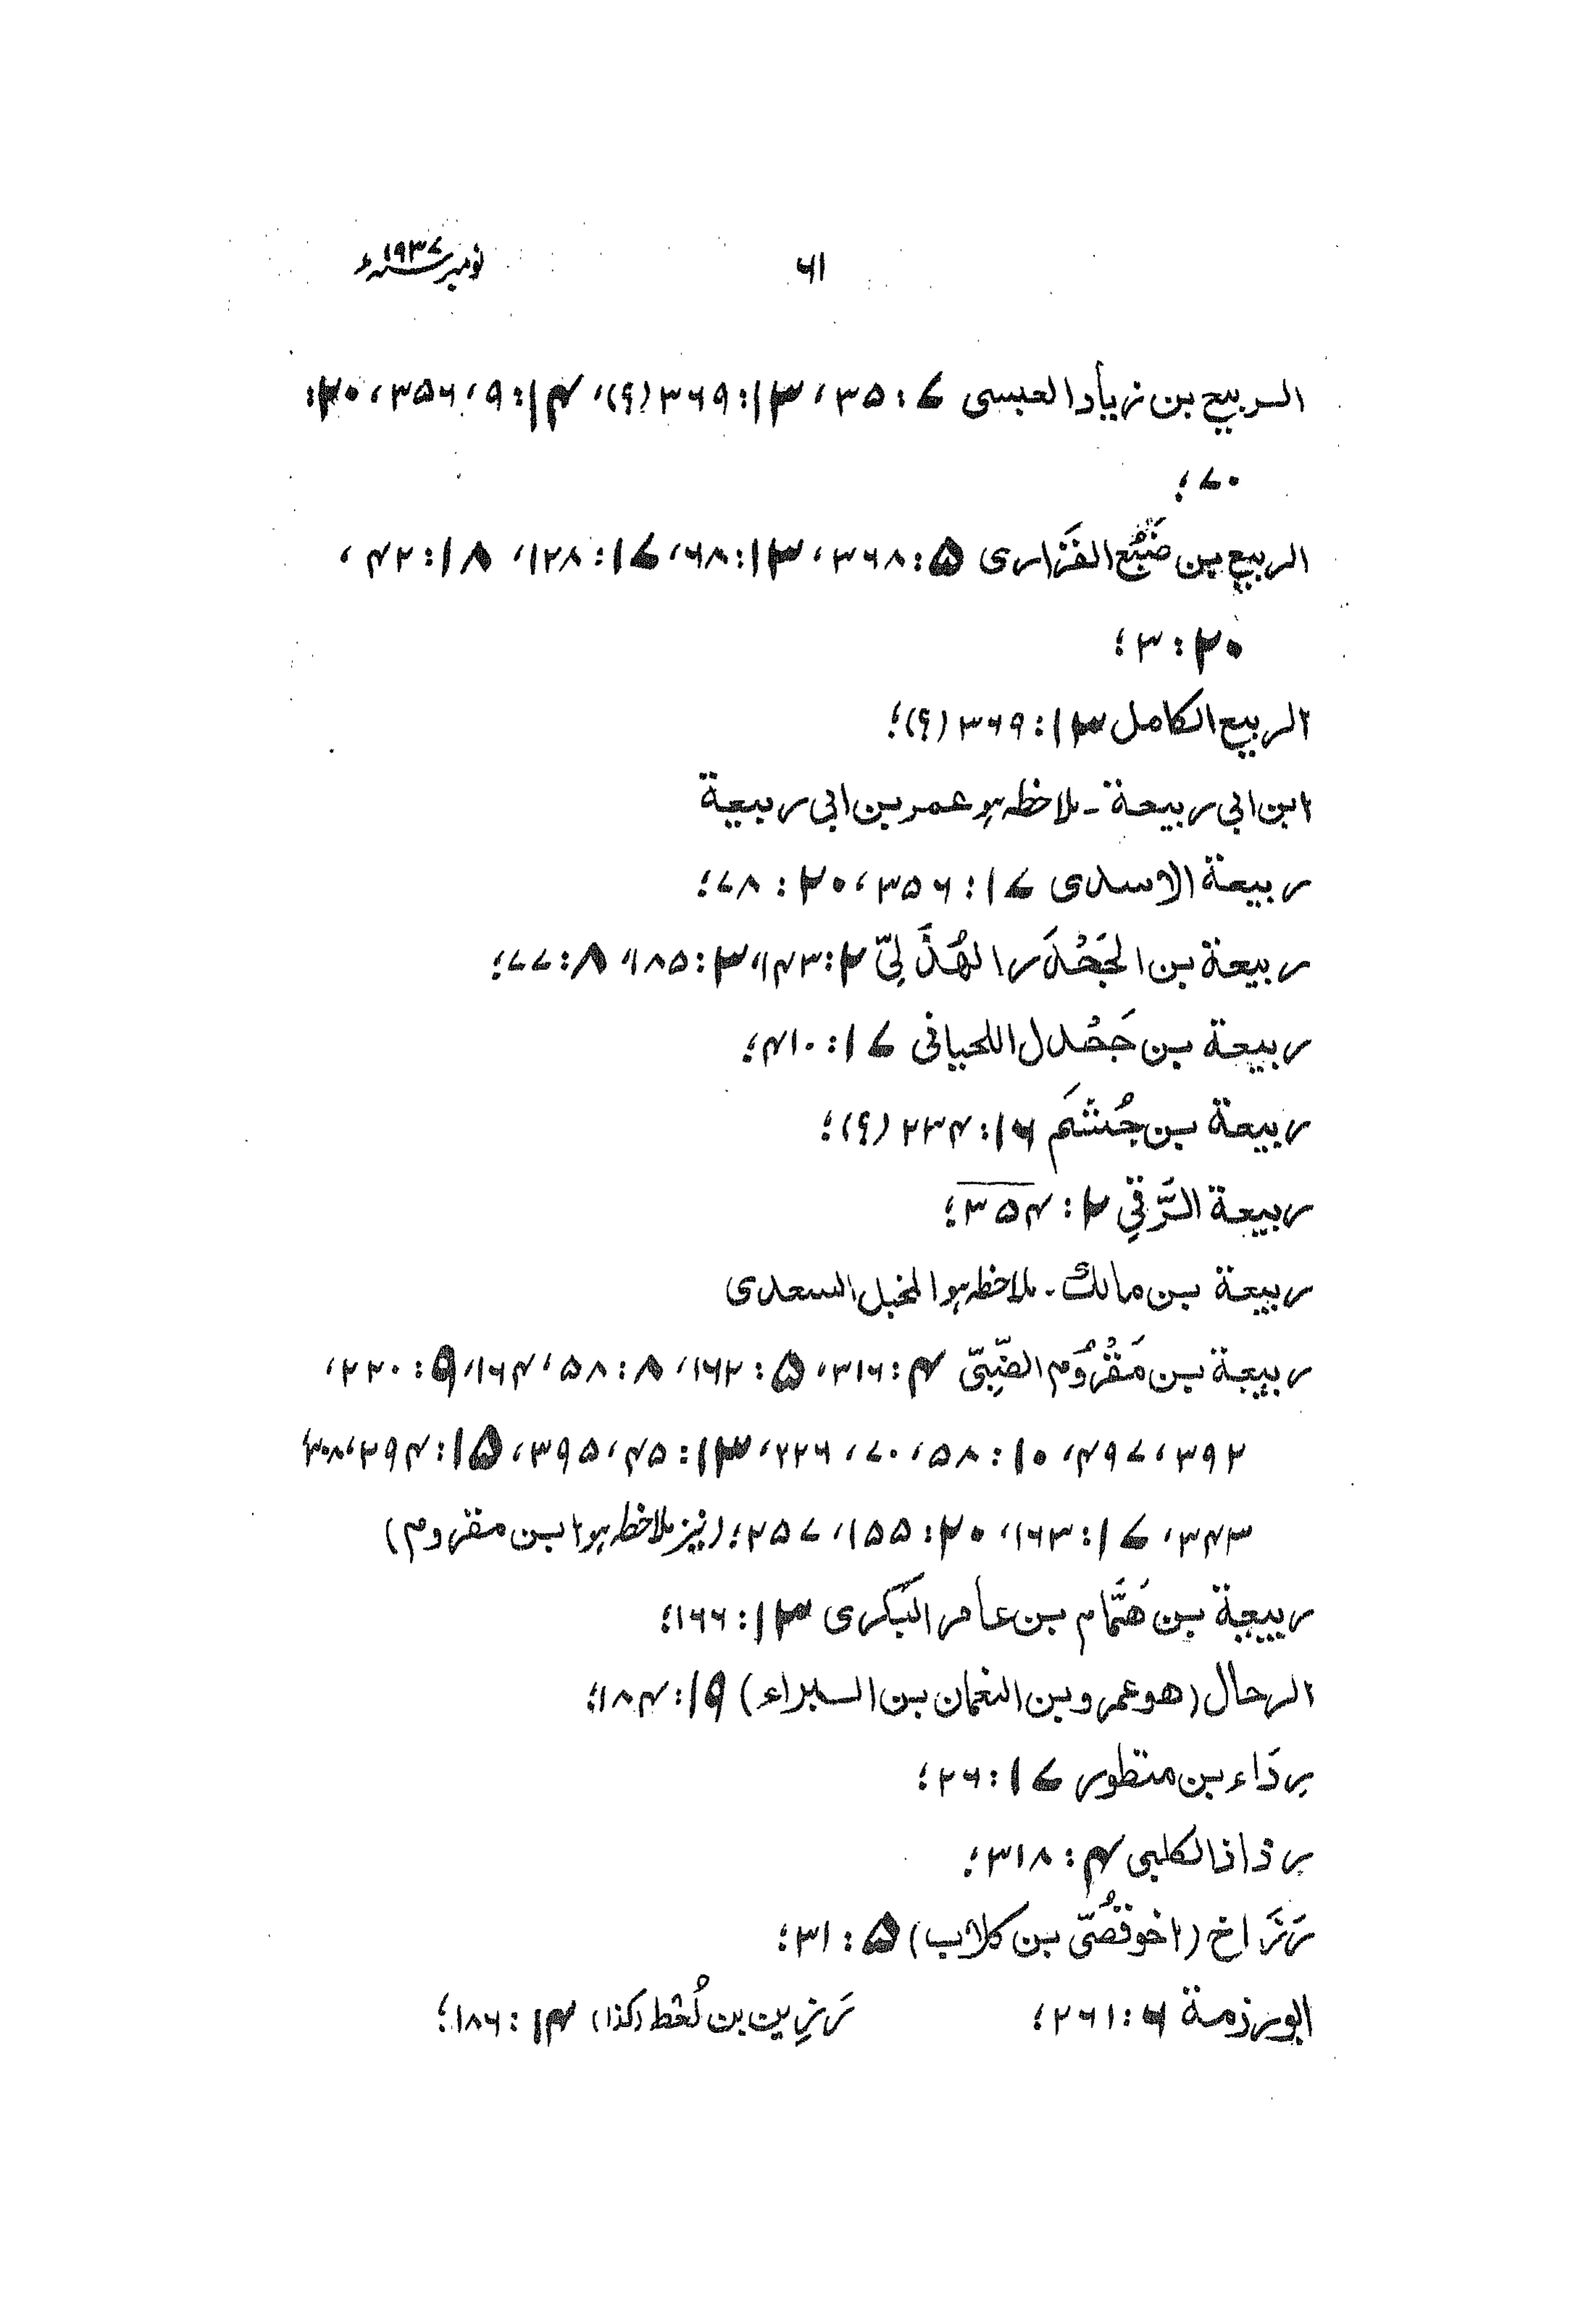 ۶۱ نومبر سنہ ۱۹۳۷ء
الربیع بن زیاد العبسی ۷: ۳۵، ۱۳: ۳۶۹ (؟)، ۱۴: ۹، ۳۵۶، ۲۰:
۷۰؛
الربیع بن ضَبُع الفَزاری ۵: ۳۶۸، ۱۳: ۶۸، ۱۷: ۱۲۸، ۱۸: ۴۲،
۲۰: ۳؛
الربیع الکامل ۱۳: ۳۶۹ (؟)؛
ابن ابی ربیعة ـ ملاحظہ ہو عمر بن ابی ربیعة
ربیعة الاسدی ۱۷: ۳۵۶، ۲۰: ۷۸؛
ربیعة بن الجَحْدَر الهُذَلِیّ ۲: ۱۴۳، ۳: ۱۸۵، ۸: ۷۷؛
ربیعة بن جَحْدل اللحیانی ۱۷: ۴۱۰؛
ربیعة بن جُشَم ۱۶: ۲۳۴ (؟)؛
ربیعة الرَّقی ۲: ۳۵۴؛
ربیعة بن مالك ـ ملاحظہ ہو المخبل السعدی
ربیعة بن مَقْرُوم الضَبِّیّ ۴: ۳۱۶، ۵: ۱۶۲، ۸: ۵۸، ۱۶۴، ۹: ۲۲۰،
۳۹۲، ۴۹۷، ۱۰: ۵۸، ۷۰، ۲۲۶، ۱۳: ۴۵، ۳۹۵، ۱۵: ۲۹۴، ۳۰۸،
۳۴۳، ۱۷: ۱۶۳، ۲۰: ۱۵۵، ۲۵۷؛ (نیز ملاحظہ ہو ابن مقروم)
ربیعة بن هَمَّام بن عامر البکری ۱۳: ۱۶۶؛
الرحال (هو عمرو بن النعمان بن البراء) ۱۹: ۱۸۴؛
رِدَاء بن منظور ۱۷: ۲۶؛
رذاذ الکلبی ۴: ۳۱۸؛
رَزَاخ (اخو قصُیّ بن کلاب) ۵: ۳۱؛
ابو رزمة ۶: ۲۶۱؛ رَزِین بن لُعْط (کذا) ۱۴: ۱۸۶؛